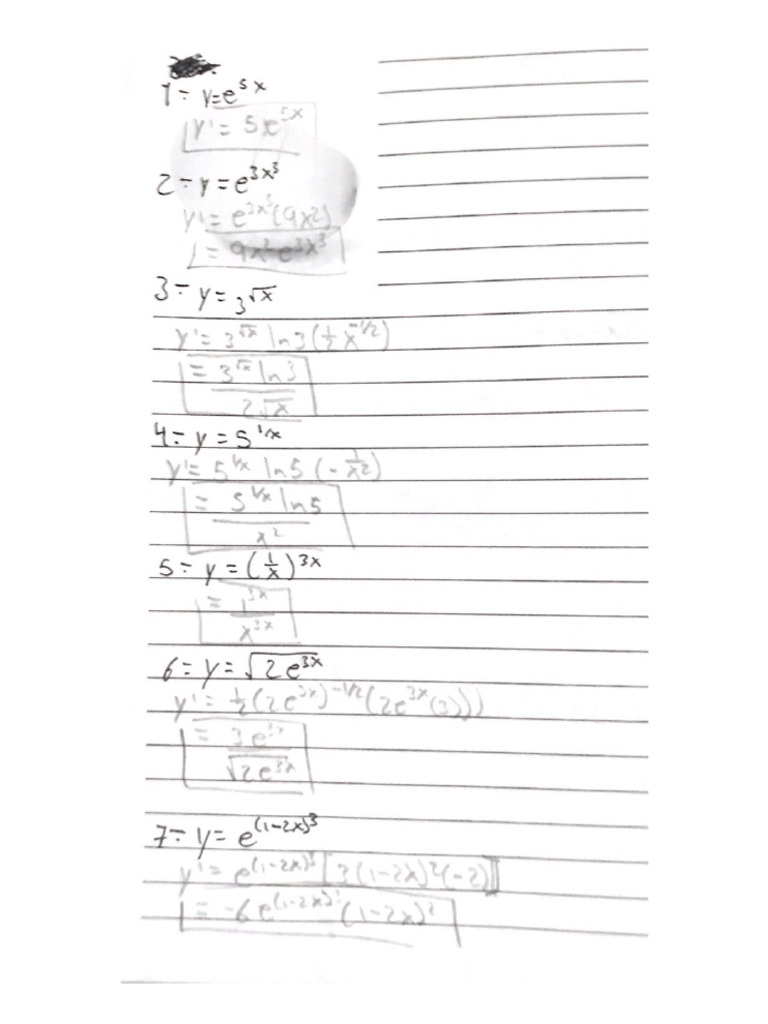 1- y=e^5x
y' = 5e^5x
2- y = e^3x³
y' = e^3x³(9x²)
= 9x²e^3x³
3- y = 3^√x
y' = 3^√x ln3 (½ x^-1/2)
= 3^√x ln3 / 2√x
4- y = 5^1/x
y' = 5^1/x ln5 (- 1/x²)
= 5^1/x ln5 / x²
5- y = (1/x)^3x
= 1^3x / x^3x
6- y = √2e^3x
y' = ½(2e^3x)^-1/2 (2e^3x(3)))
= 3e^3x / √2e^3x
7- y = e^(1-2x)³
y' = e^(1-2x)³ [3(1-2x)²(-2)]
= -6e^(1-2x)³ (1-2x)²